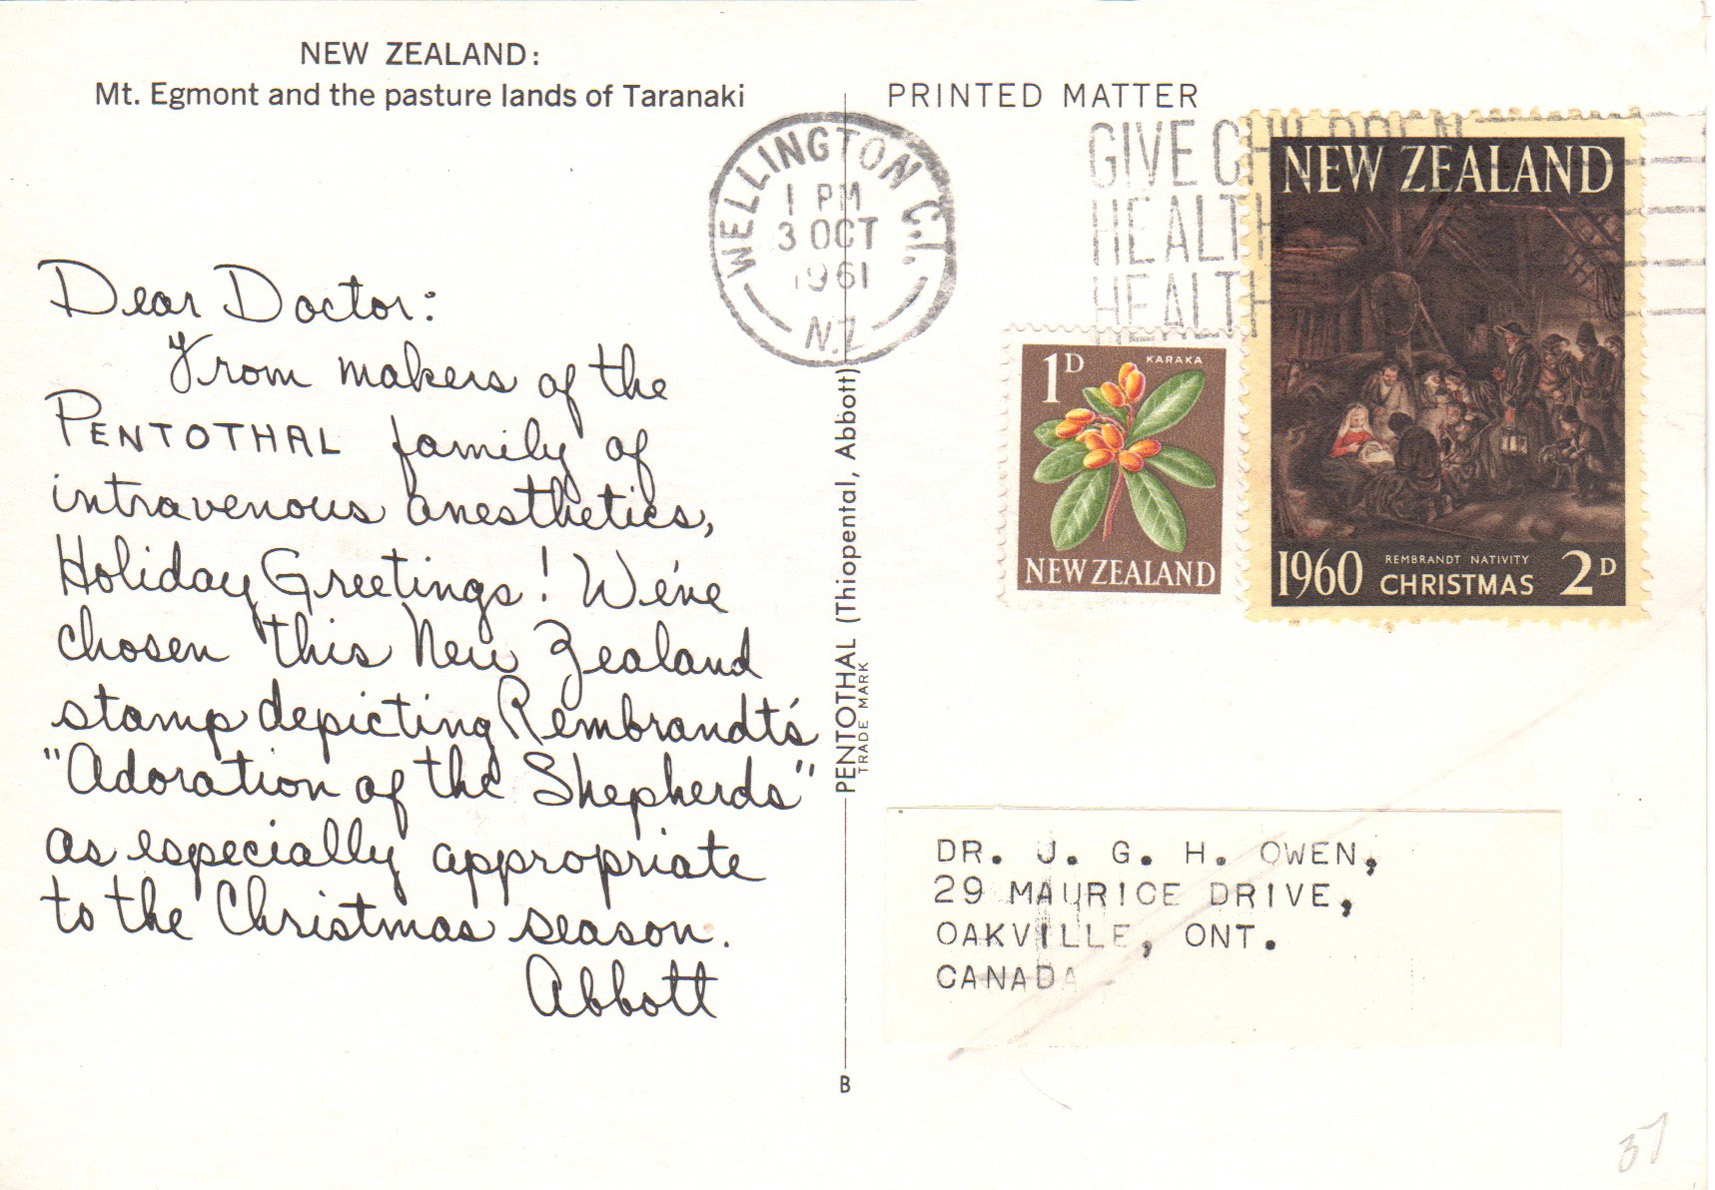 NEW ZEALAND:
Mt. Egmont and the pasture lands of Taranaki
Dear Doctor:
From makers of the
PENTOTHAL family of
intravenous anesthetics,
Holiday Greetings! We've
chosen this New Zealand
stamp depicting Rembrandt's
"Adoration of the Shepherds"
as especially appropriate
to the Christmas season.
Abbott
PENTOTHAL (Thiopental, Abbott)
TRADE MARK
B
PRINTED MATTER
WELLINGTON C.1.
1 PM
3 OCT
1961
N.Z
GIVE CHILDREN
HEALTH
HEALTH
1D KARAKA
NEW ZEALAND
NEW ZEALAND
1960 REMBRANDT NATIVITY
CHRISTMAS 2D
DR. J. G. H. OWEN,
29 MAURICE DRIVE,
OAKVILLE, ONT.
CANADA
37